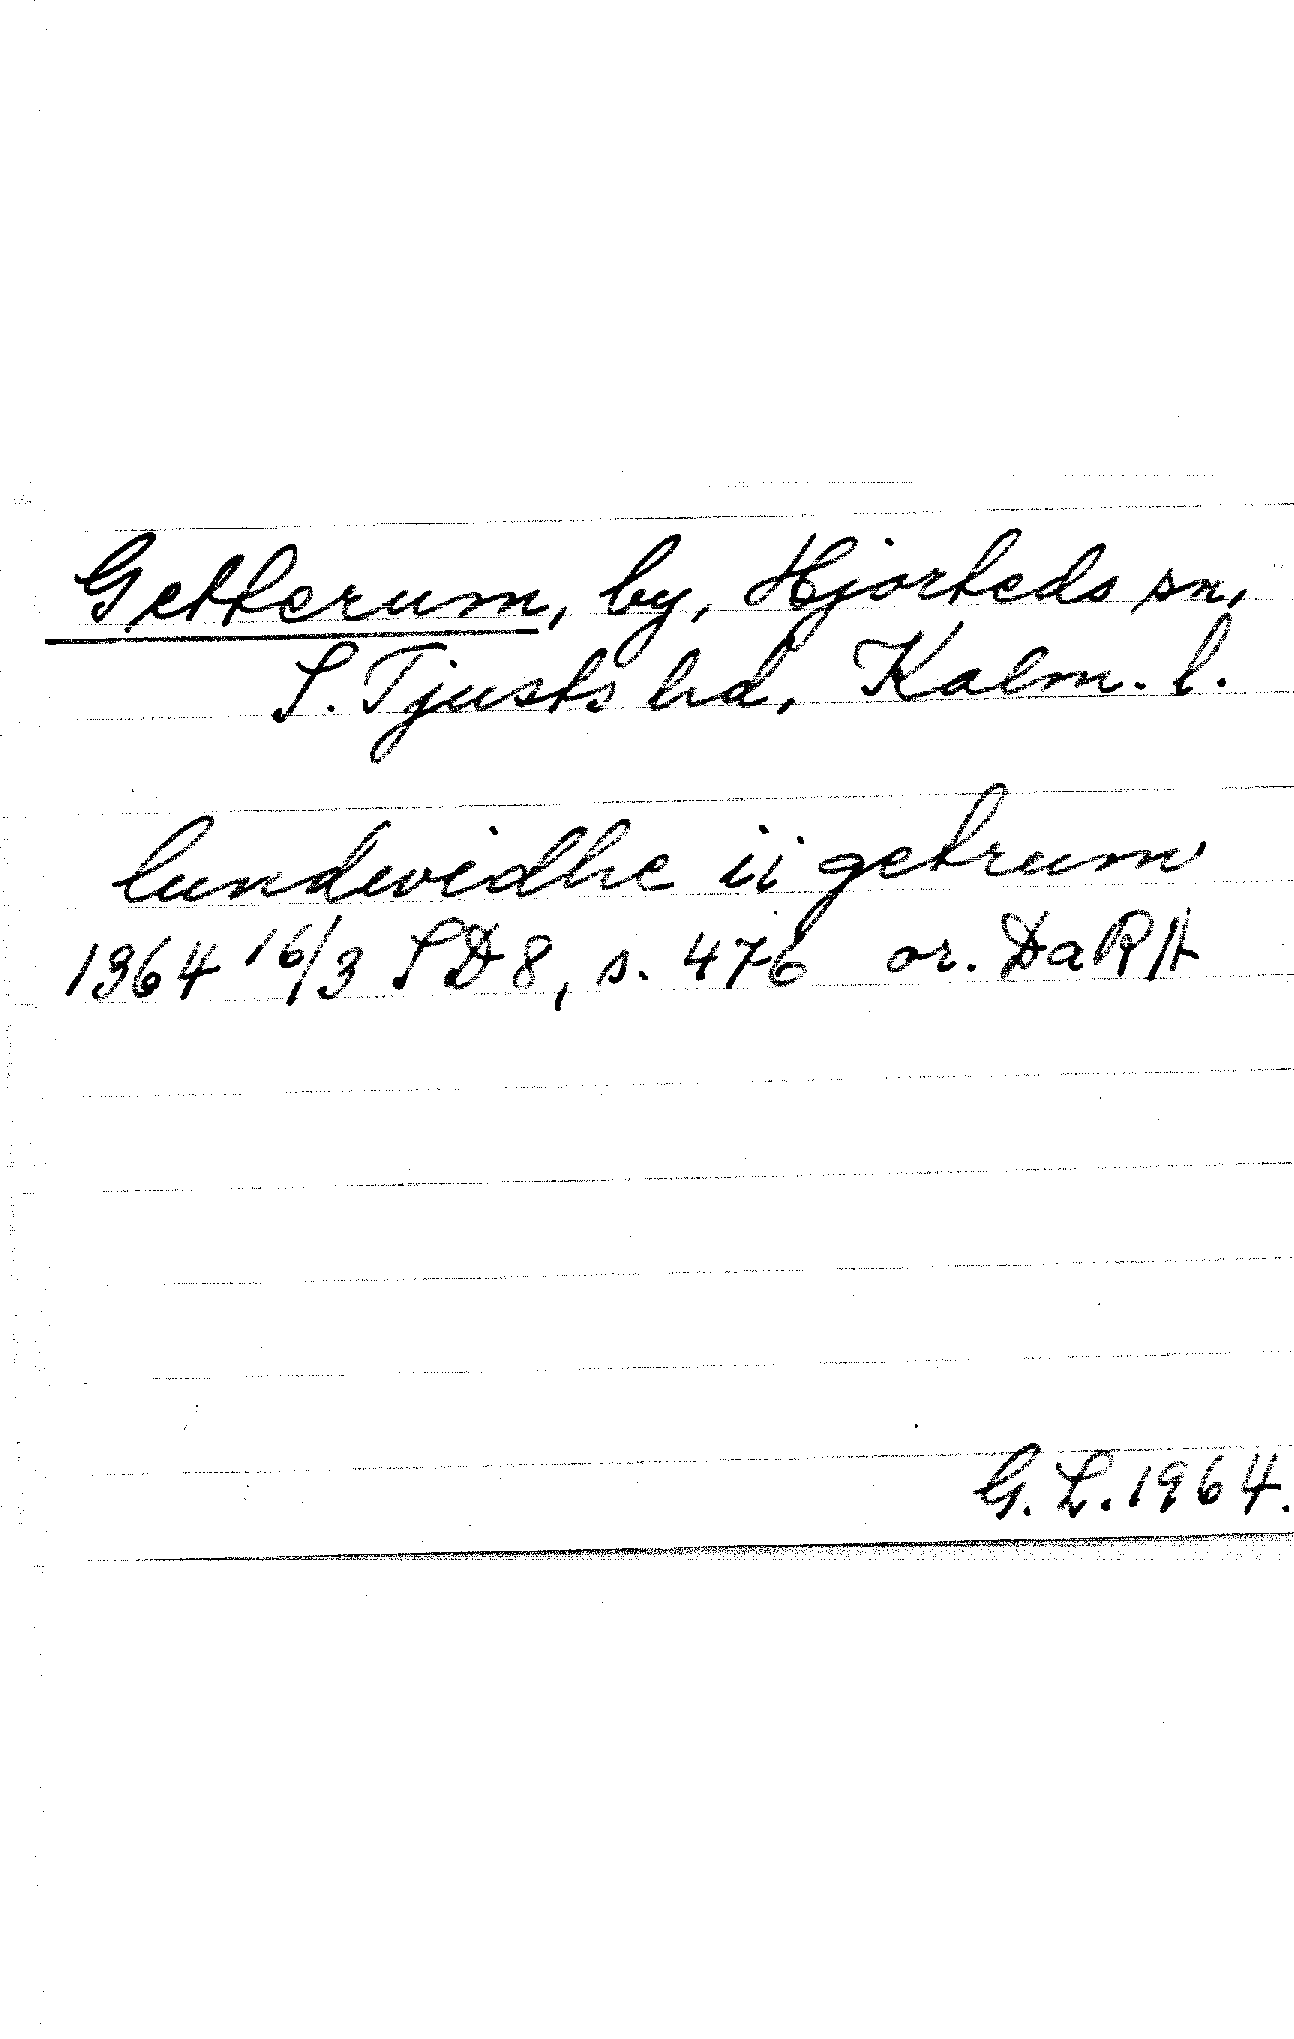 Getterum, by, Hjorteds sn,
S. Tjusts hd, Kalm. l.
lundwidhe ii getrum
1364 16/3 SD 8, s. 476 or. DaRA
G. L. 1964.